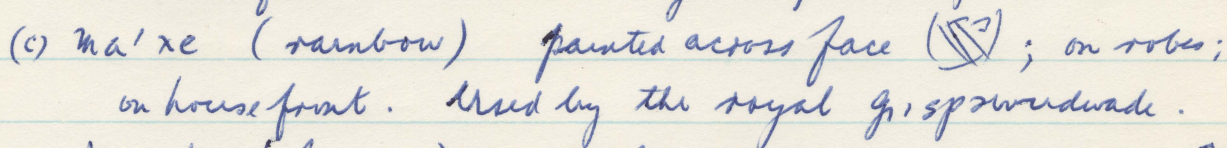 (c) ma'xe (rainbow) painted across face ( ); on robes;
on house front. Used by the royal